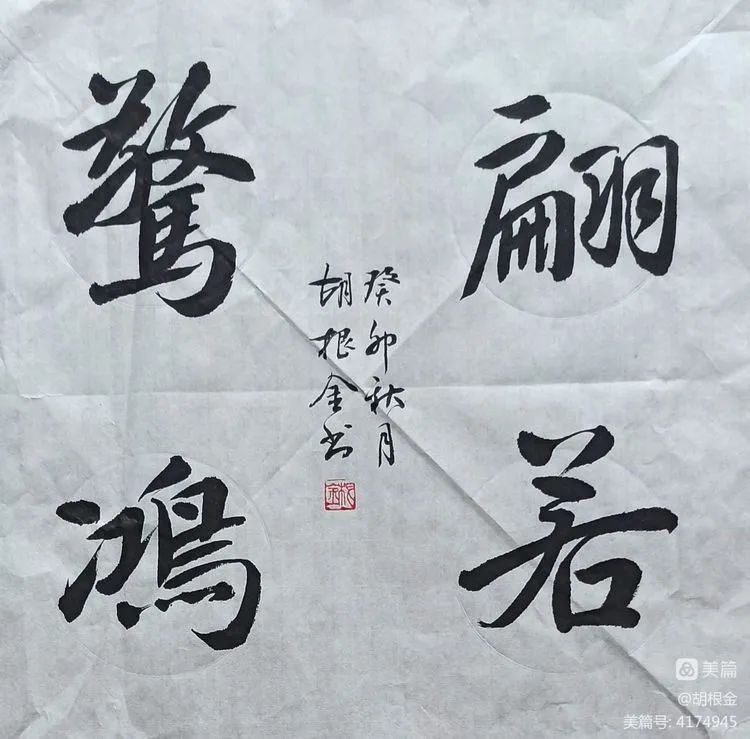 翩若
驚鴻
癸卯秋月
胡根金书
美篇
@胡根金
美篇号: 4174945